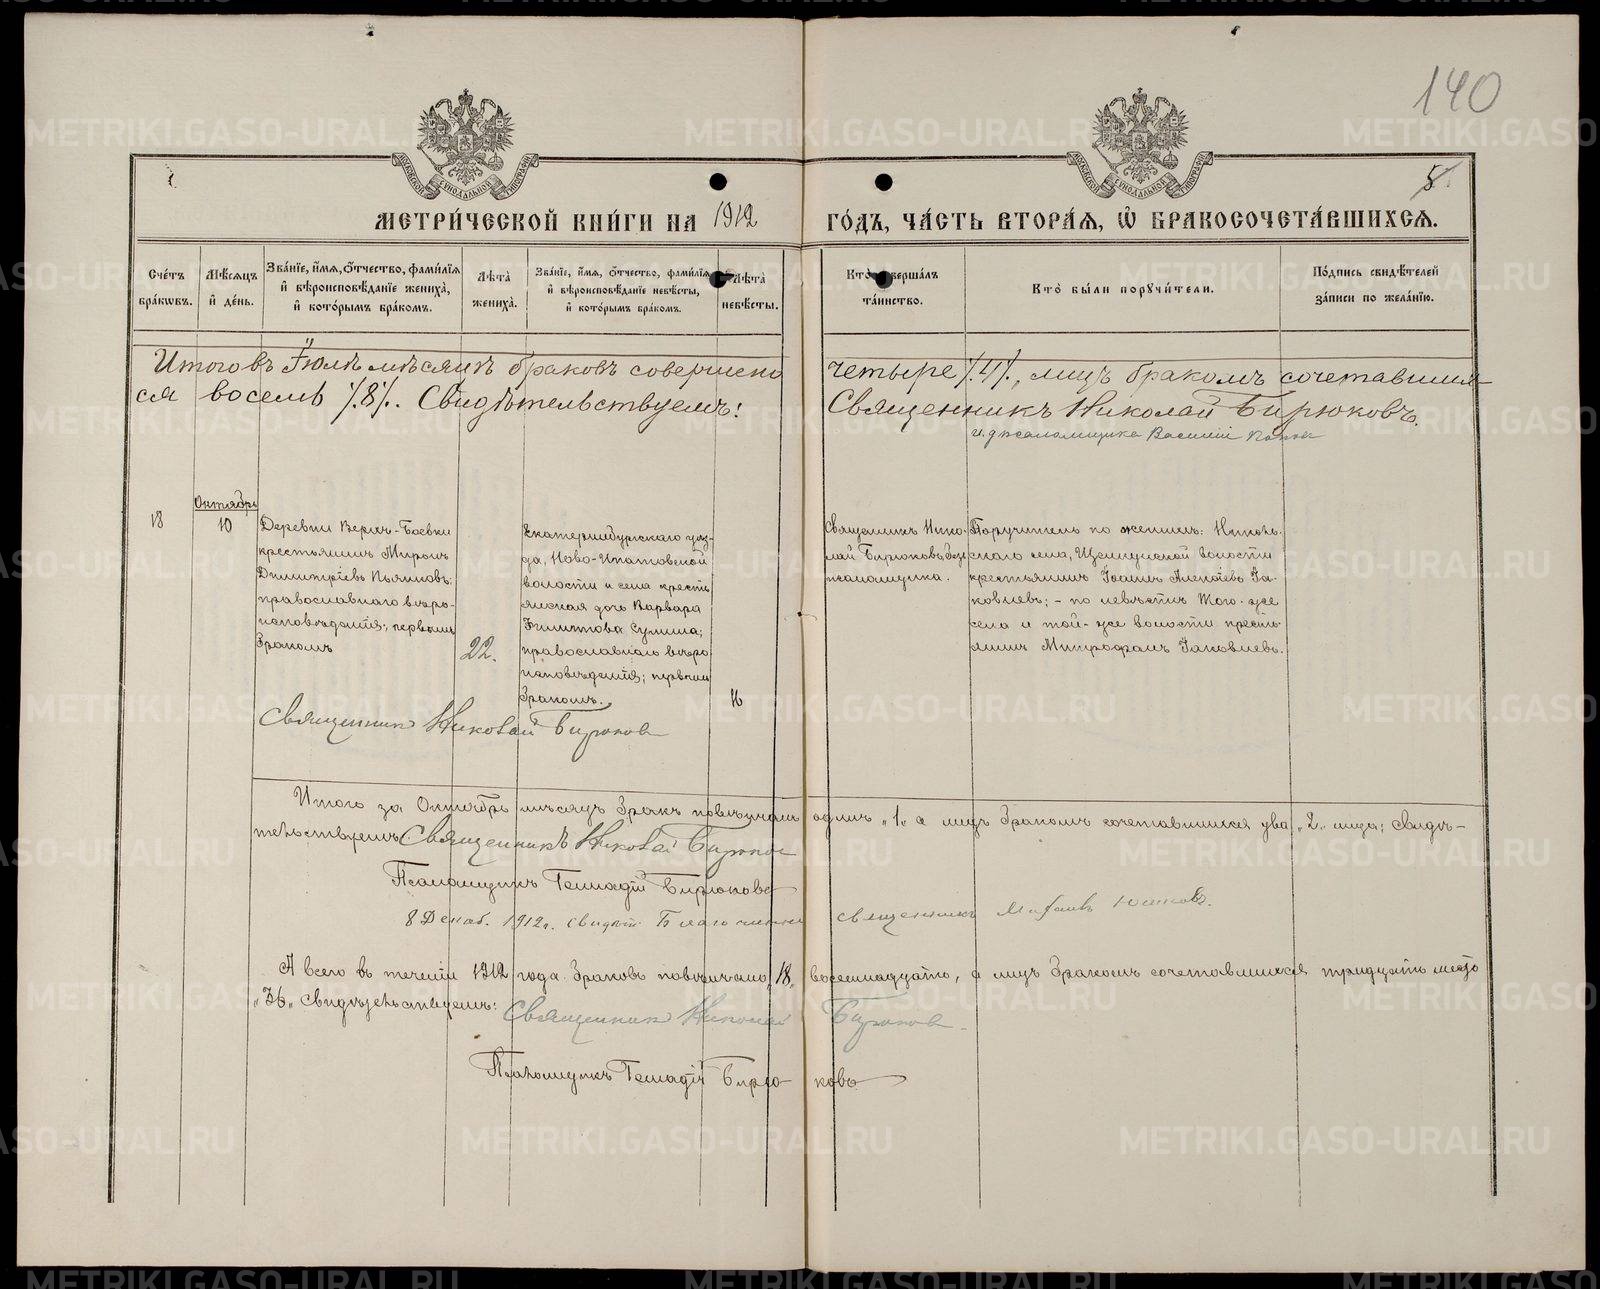 140
МОСКОВСКОЙ СѴНОДАЛЬНОЙ ТИПОГРАФІИ
МОСКОВСКОЙ СѴНОДАЛЬНОЙ ТИПОГРАФІИ
5.
МЕТРИ́ЧЕСКОЙ КНИ́ГИ НА 1912 ГО́ДЪ, ЧА́СТЬ ВТОРА́Я, Ѽ БРАКОСОЧЕТА́ВШИХСЯ.
Сче́тъ бра́кѡвъ.
Мѣ́сяцъ и́ де́нь.
Зва́нїе, и́мя, ѻ́тчество, фами́лїя и́ вѣроисповѣ́данїе жениха̀, и́ кото́рымъ бра́комъ.
Лѣта̀ жениха̀.
Зва́нїе, и́мя, ѻ́тчество, фами́лїя и́ вѣроисповѣ́данїе невѣ́сты, и́ кото́рымъ бра́комъ.
Лѣта̀ невѣ́сты.
Кто̀ соверша́лъ та́инство.
Кто̀ бы́ли порꙋчи́тели.
По́дпись свидѣ́телей за́писи по жела́нїю.
Итого въ Іюлѣ мѣсяцѣ браковъ совершено четыре /.4/., лицъ бракомъ сочетавших
ся восемь /.8/. Свидѣтельствуемъ: Священникъ Николай Бирюковъ.
и. д. псаломщика Василій Попов
18
Октябрь
10
Деревни Верхъ-Боевки
крестьянинъ Миронъ
Димитріевъ Пьянковъ,
православнаго вѣро-
исповѣданія; первымъ
бракомъ
22.
Екатеринбургскаго уѣз-
да, Ново-Ипатовской
волости и села кресть
янская дочь Варвара
Сулина;
православнаго вѣро
исповѣданія; первымъ
бракомъ.
Священникъ Нико-
лай Бирюковъ, безъ
псаломщика.
Поручители по женихѣ:
скаго села, волости
крестьянинъ Іоаннъ Алексѣевъ Іа-
ковлевъ; - по невѣстѣ того-же
села и той-же волости кресть-
янинъ Митрофанъ Іаковлевъ.
Священник Николай Бирюков
Итого за Октябрь мѣсяцъ бракъ повѣнчанъ одинъ „1„ а лицъ бракомъ сочетавшихся два „2„ лица; свидѣ-
тельствуемъ: Священникъ Николай Бирюков
Псаломщикъ Геннадій Бирюковъ
8 Декаб. 1912 г. свидѣт. Благочинный священникъ
А всего въ теченіи 1912 года браковъ повѣнчано „18„ восемнадцать, а лицъ бракомъ сочетавшихся тридцать шесть
„36„ Свидѣтельствуемъ: Священник Николай Бирюков.
Псаломщикъ Геннадій Бирюковъ
METRIKI.GASO-URAL.RU